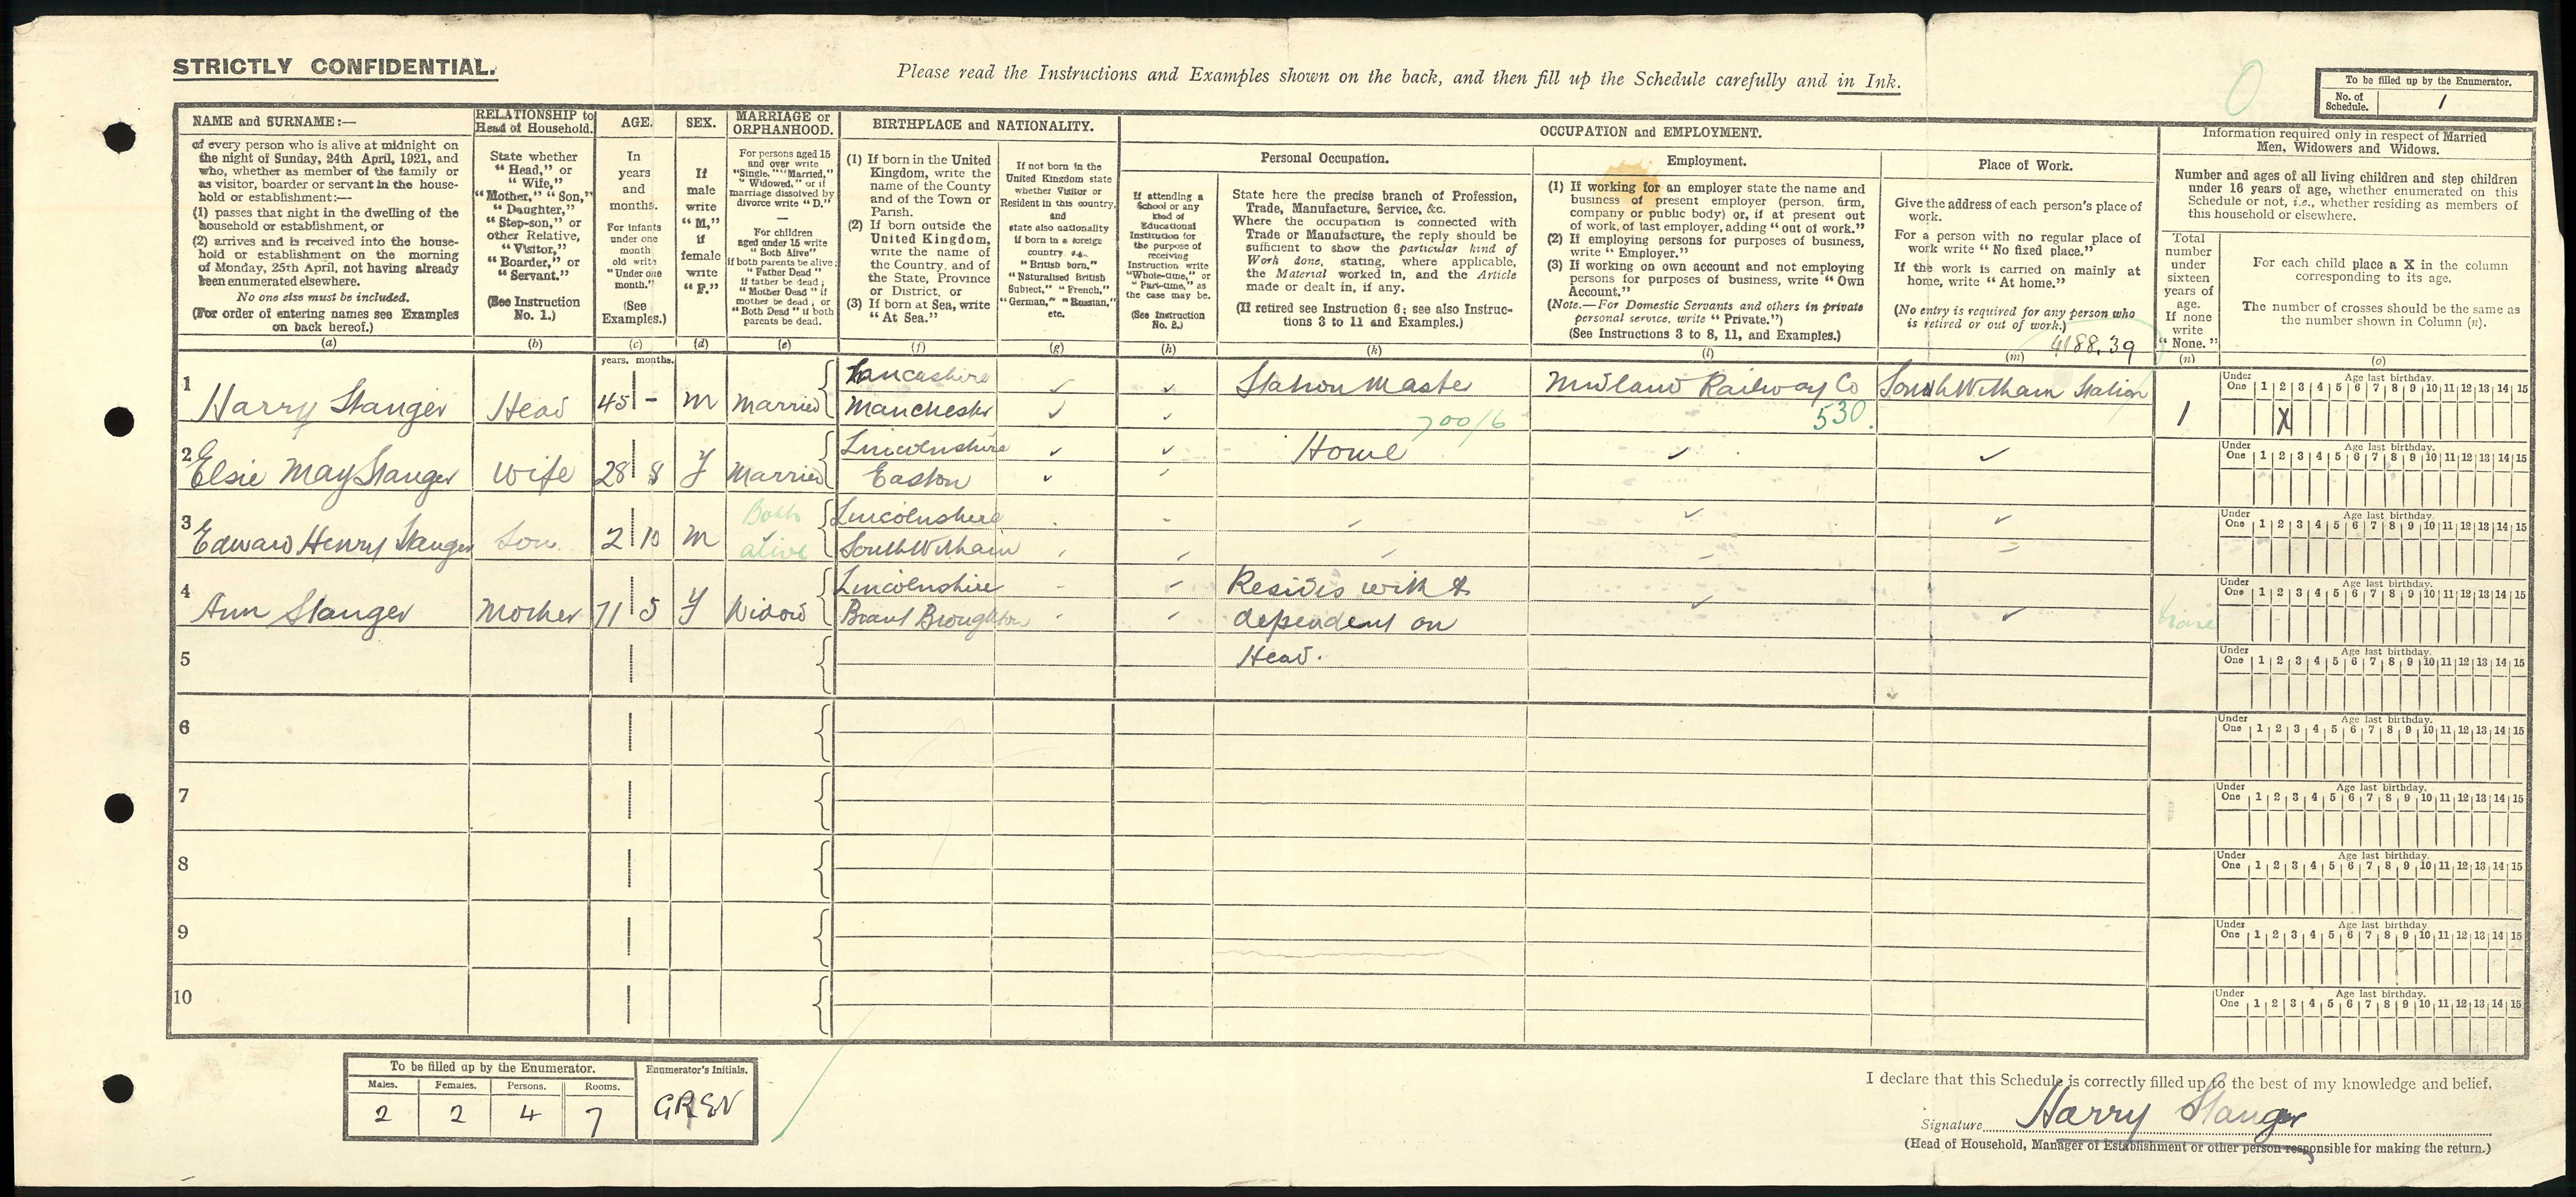 STRICTLY CONFIDENTIAL.
Please read the Instructions and Examples shown on the back, and then fill up the Schedule carefully and in Ink.
To be filled up by the Enumerator.
No. of Schedule. 1
NAME and SURNAME:—
of every person who is alive at midnight on
the night of Sunday, 24th April, 1921, and
who, whether as member of the family or
as visitor, boarder or servant in the house-
hold or establishment:—
(1) passes that night in the dwelling of the
household or establishment, or
(2) arrives and is received into the house-
hold or establishment on the morning
of Monday, 25th April, not having already
been enumerated elsewhere.
No one else must be included.
(For order of entering names see Examples
on back hereof.)
(a)
RELATIONSHIP to
Head of Household.
State whether
"Head," or
"Wife,"
"Mother," "Son,"
"Daughter,"
"Step-son," or
other Relative,
"Visitor,"
"Boarder," or
"Servant."
(See Instruction
No. 1.)
(b)
AGE.
In
years
and
months.
For infants
under one
month
old write
"Under one
month."
(See
Examples.)
(c)
SEX.
If
male
write
"M,"
if
female
write
"F."
(d)
MARRIAGE or
ORPHANHOOD.
For persons aged 15
and over write
"Single," "Married,"
"Widowed," or if
marriage dissolved by
divorce write "D."
—
For children
aged under 15 write
"Both Alive"
if both parents be alive;
"Father Dead"
if father be dead;
"Mother Dead" if
mother be dead; or
"Both Dead" if both
parents be dead.
(e)
BIRTHPLACE and NATIONALITY.
(1) If born in the United
Kingdom, write the
name of the County
and of the Town or
Parish.
(2) If born outside the
United Kingdom,
write the name of
the Country, and of
the State, Province
or District, or
(3) If born at Sea, write
"At Sea."
(f)
If not born in the
United Kingdom state
whether Visitor or
Resident in this country,
and
state also nationality
if born in a foreign
country, e.g.
"British born,"
"Naturalised British
Subject," "French,"
"German," "Russian,"
etc.
(g)
OCCUPATION and EMPLOYMENT.
If attending a
School or any
kind of
Educational
Institution for
the purpose of
receiving
Instruction write
"Whole-time," or
"Part-time," as
the case may be.
(See Instruction
No. 2.)
(h)
Personal Occupation.
State here the precise branch of Profession,
Trade, Manufacture, Service, &c.
Where the occupation is connected with
Trade or Manufacture, the reply should be
sufficient to show the particular kind of
Work done, stating, where applicable,
the Material worked in, and the Article
made or dealt in, if any.
(If retired see Instruction 6; see also Instruc-
tions 3 to 11 and Examples.)
(k)
Employment.
(1) If working for an employer state the name and
business of present employer (person, firm,
company or public body) or, if at present out
of work, of last employer, adding "out of work."
(2) If employing persons for purposes of business,
write "Employer."
(3) If working on own account and not employing
persons for purposes of business, write "Own
Account."
(Note.—For Domestic Servants and others in private
personal service, write "Private.")
(See Instructions 3 to 8, 11, and Examples.)
(l)
Place of Work.
Give the address of each person's place of
work.
For a person with no regular place of
work write "No fixed place."
If the work is carried on mainly at
home, write "At home."
(No entry is required for any person who
is retired or out of work.)
4188.39
(m)
Information required only in respect of Married
Men, Widowers and Widows.
Number and ages of all living children and step children
under 16 years of age, whether enumerated on this
Schedule or not, i.e., whether residing as members of
this household or elsewhere.
Total
number
under
sixteen
years of
age.
If none
write
"None."
(n)
For each child place a X in the column
corresponding to its age.
The number of crosses should be the same as
the number shown in Column (n).
(o)
years. months.
1 Harry Stanger Head 45 - M Married Lancashire Manchester Station Master Midland Railway Co South Witham Station 1
700/6 530.
Under One 1 2 3 4 5 6 7 8 9 10 11 12 13 14 15 Age last birthday.
X
2 Elsie May Stanger Wife 28 8 F Married Lincolnshire Easton Home
Under One 1 2 3 4 5 6 7 8 9 10 11 12 13 14 15 Age last birthday.
3 Edward Henry Stanger Son 2 10 M Both alive Lincolnshire South Witham
Under One 1 2 3 4 5 6 7 8 9 10 11 12 13 14 15 Age last birthday.
4 Ann Stanger Mother 71 5 F Widow Lincolnshire Brant Broughton Resides with & dependent on Head. None
Under One 1 2 3 4 5 6 7 8 9 10 11 12 13 14 15 Age last birthday.
5
Under One 1 2 3 4 5 6 7 8 9 10 11 12 13 14 15 Age last birthday.
6
Under One 1 2 3 4 5 6 7 8 9 10 11 12 13 14 15 Age last birthday.
7
Under One 1 2 3 4 5 6 7 8 9 10 11 12 13 14 15 Age last birthday.
8
Under One 1 2 3 4 5 6 7 8 9 10 11 12 13 14 15 Age last birthday.
9
Under One 1 2 3 4 5 6 7 8 9 10 11 12 13 14 15 Age last birthday.
10
Under One 1 2 3 4 5 6 7 8 9 10 11 12 13 14 15 Age last birthday.
To be filled up by the Enumerator.
Males. Females. Persons. Rooms.
2 2 4 7
Enumerator's Initials.
I declare that this Schedule is correctly filled up to the best of my knowledge and belief.
Signature Harry Stanger
(Head of Household, Manager of Establishment or other person responsible for making the return.)